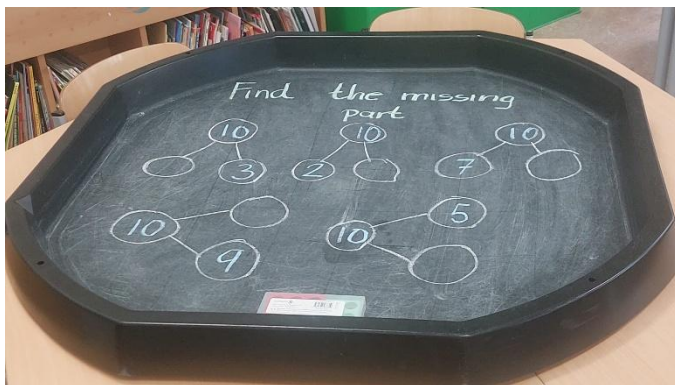 Find the missing
part
10 10 10
3 2 7
10 5
9 10